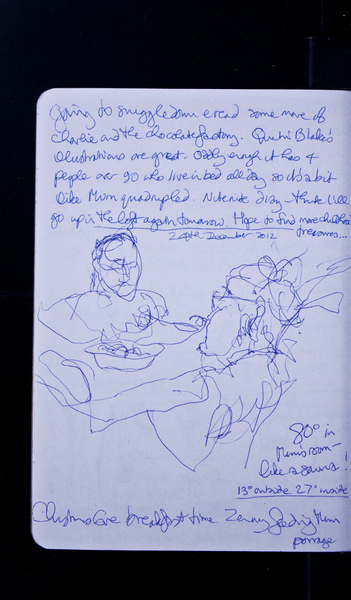 Going to snuggle down & read some more of
Charlie and the chocolate factory. Quentin Blake's
illustrations are great. Oddly enough it has 4
people over 90 who live in bed all day so it's a bit
like Mum quadrupled. Nite nite diary - think I'll
go up in the loft again tomorrow. Hope to find more childhood
treasures...
24th December 2012
80° in
Mum's room -
like a sauna!
13° outside 27° inside
Christmas Eve breakfast time Zenny feeding Mum
porrage